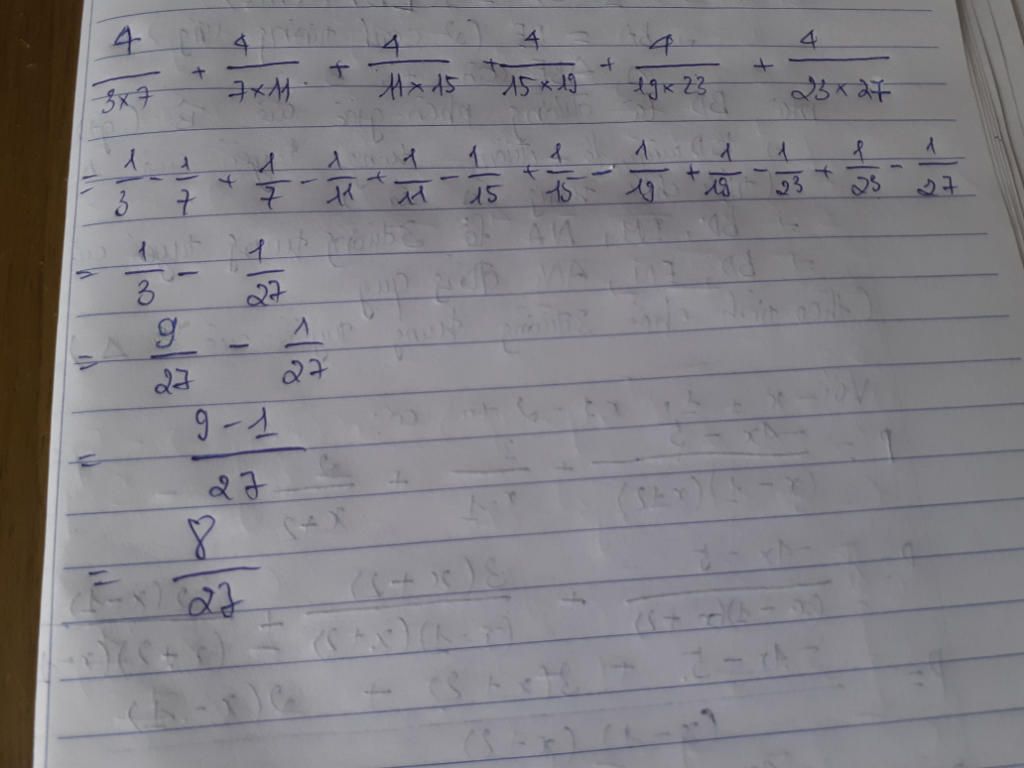 4/3×7 + 4/7×11 + 4/11×15 + 4/15×19 + 4/19×23 + 4/23×27
= 1/3 - 1/7 + 1/7 - 1/11 + 1/11 - 1/15 + 1/15 - 1/19 + 1/19 - 1/23 + 1/23 - 1/27
= 1/3 - 1/27
= 9/27 - 1/27
= 9-1/27
= 8/27